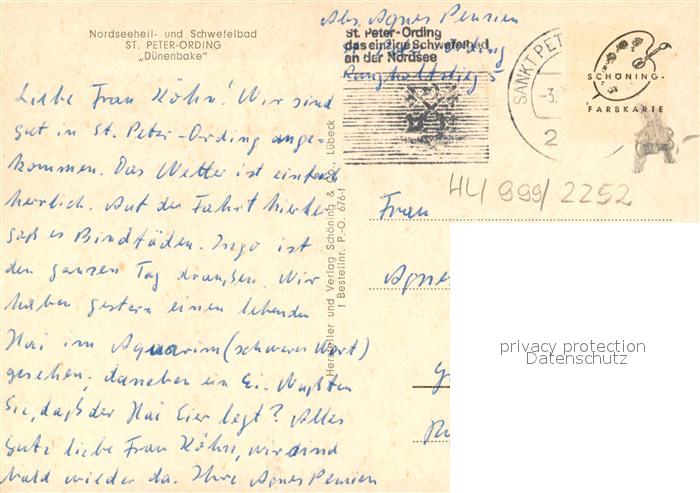 Nordseeheil- und Schwefelbad
ST. PETER-ORDING
„Dünenbake"
Liebe Frau Köhn! Wir sind
gut in St. Peter-Ording ange-
kommen. Das Wetter ist einfach
herrlich. Auf der Fahrt hierher
goß es Bindfäden. Ingo ist
den ganzen Tag draußen. Wir
haben gestern einen lebenden
Hai im Aquarium (schweres Wort)
gesehen, daneben ein Ei. Wußten
Sie, daß der Hai Eier legt? Alles
Gute liebe Frau Köhn, wir sind
bald wieder da. Ihre Agnes Pensien
Hersteller und Verlag Schöning & Co., Lübeck
Bestellnr. P.-O. 676-f
Abs. Agnes Pensien
Ording
Rungholtstieg 5
St. Peter-Ording
das einzige Schwefelbad
an der Nordsee
SANKT PET
-3.
2
SCHÖNING-
FARBKARTE
HL/999/2252
Frau
Agnes
privacy protection
Datenschutz